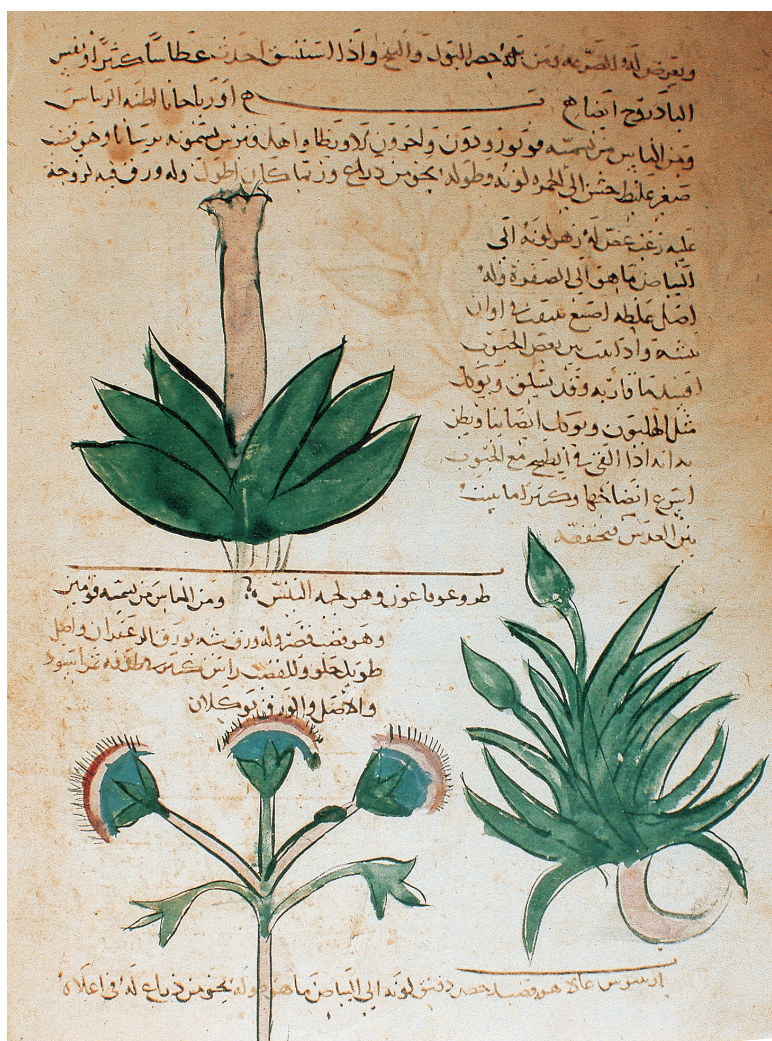 ويعرض له الصرع ومن حصر البول واذا استنشق احدث عطاسا كثيرا
الباذروج ايضا
ومن الناس من يسميه واخرون واهل يسمونه وهو قضيب
صغير غليظ خشن الى الحمرة لونه وطوله نحو من ذراع وربما كان اطول وله ورق فيه لزوجة
عليه زغب غض له زهر لونه الى
البياض ما هو الى الصفرة وله
اصل غلظه اصبع في اوان
واذا نبت بين بعض الحبوب
افسد ما قاربه وقد يسلق ويوكل
مثل الهليون ويوكل ايضا نيا ويظن
به انه اذا القي في الطبيخ مع الحبوب
اسرع انضاجها وكثيرا ما ينبت
بين العدس فيخنقه
طروعوفاعون وهو لحية التيس ومن الناس من يسميه
وهو قضيب قصير وله ورق شبه بورق الزعفران واصل
طويل حلو وللقضيب راس كبير في طرفه ثمر اسود
والاصل والورق يوكلان
هو قضيب دقيق لونه الى البياض ما هو طوله نحو من ذراع له في اعلاه